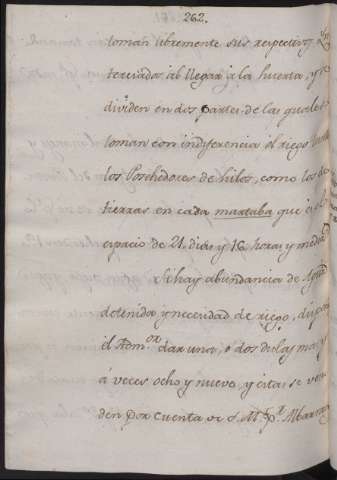 262.
toman libremente sus respectivos
terciados al llegar á la huerta, y se
dividen en dos partes, de las quales
toman con indiferencia el riego tanto
los Porchedores de hilos, como los de
tierras en cada martaba que es el
espacio de 21. dias y 16 horas y media
Si hay abundancia de Agua
detenida y necesidad de riego, dispone
el Adm.or dar una, ó dos dulas mas, y
á veces ocho y nueve, y estas se ven
den por cuenta de S. M. p.r Albaranes